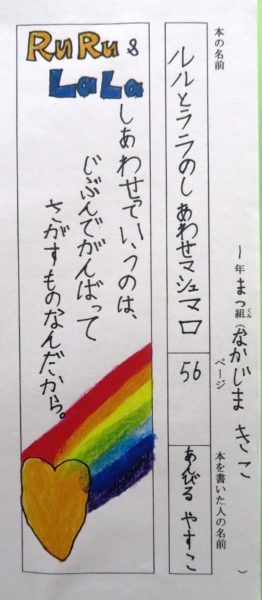 本の名前
ルルとララのしあわせマシュマロ
ページ
56
本を書いた人の名前
あんびる やすこ
一年まつ組(くみ)(なかじま きこ)
RuRu&
LaLa
しあわせっていうのは、
じぶんでがんばって
さがすものなんだから。